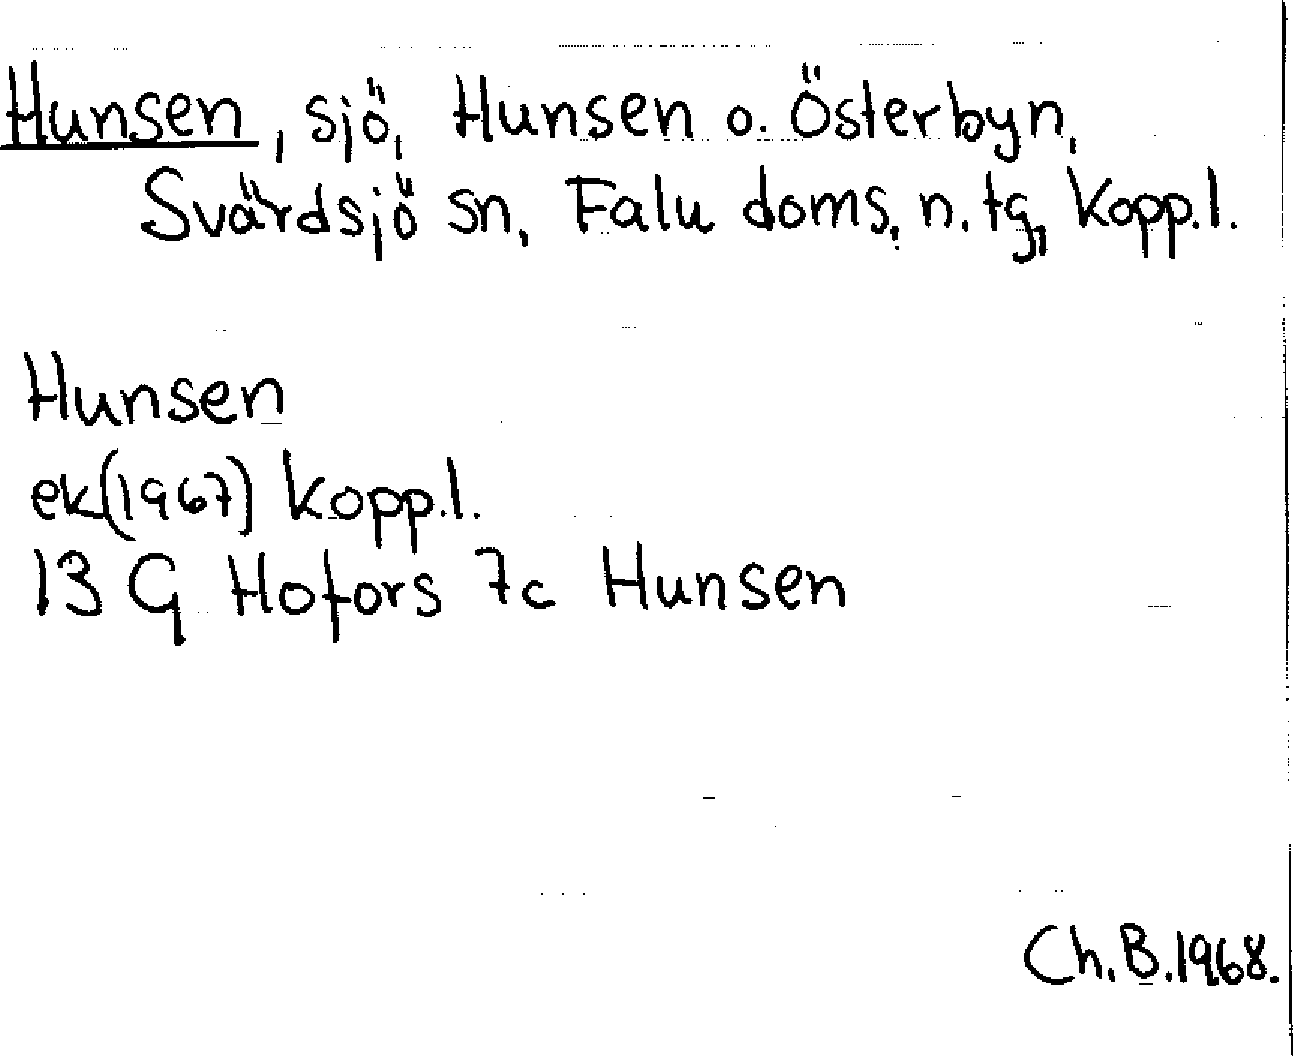 Hunsen, sjö, Hunsen o. Österbyn,
Svärdsjö sn, Falu doms. n. tg, Kopp.l.
Hunsen
ek(1967) Kopp.l.
13 G Hofors 7c Hunsen
Ch.B.1968.